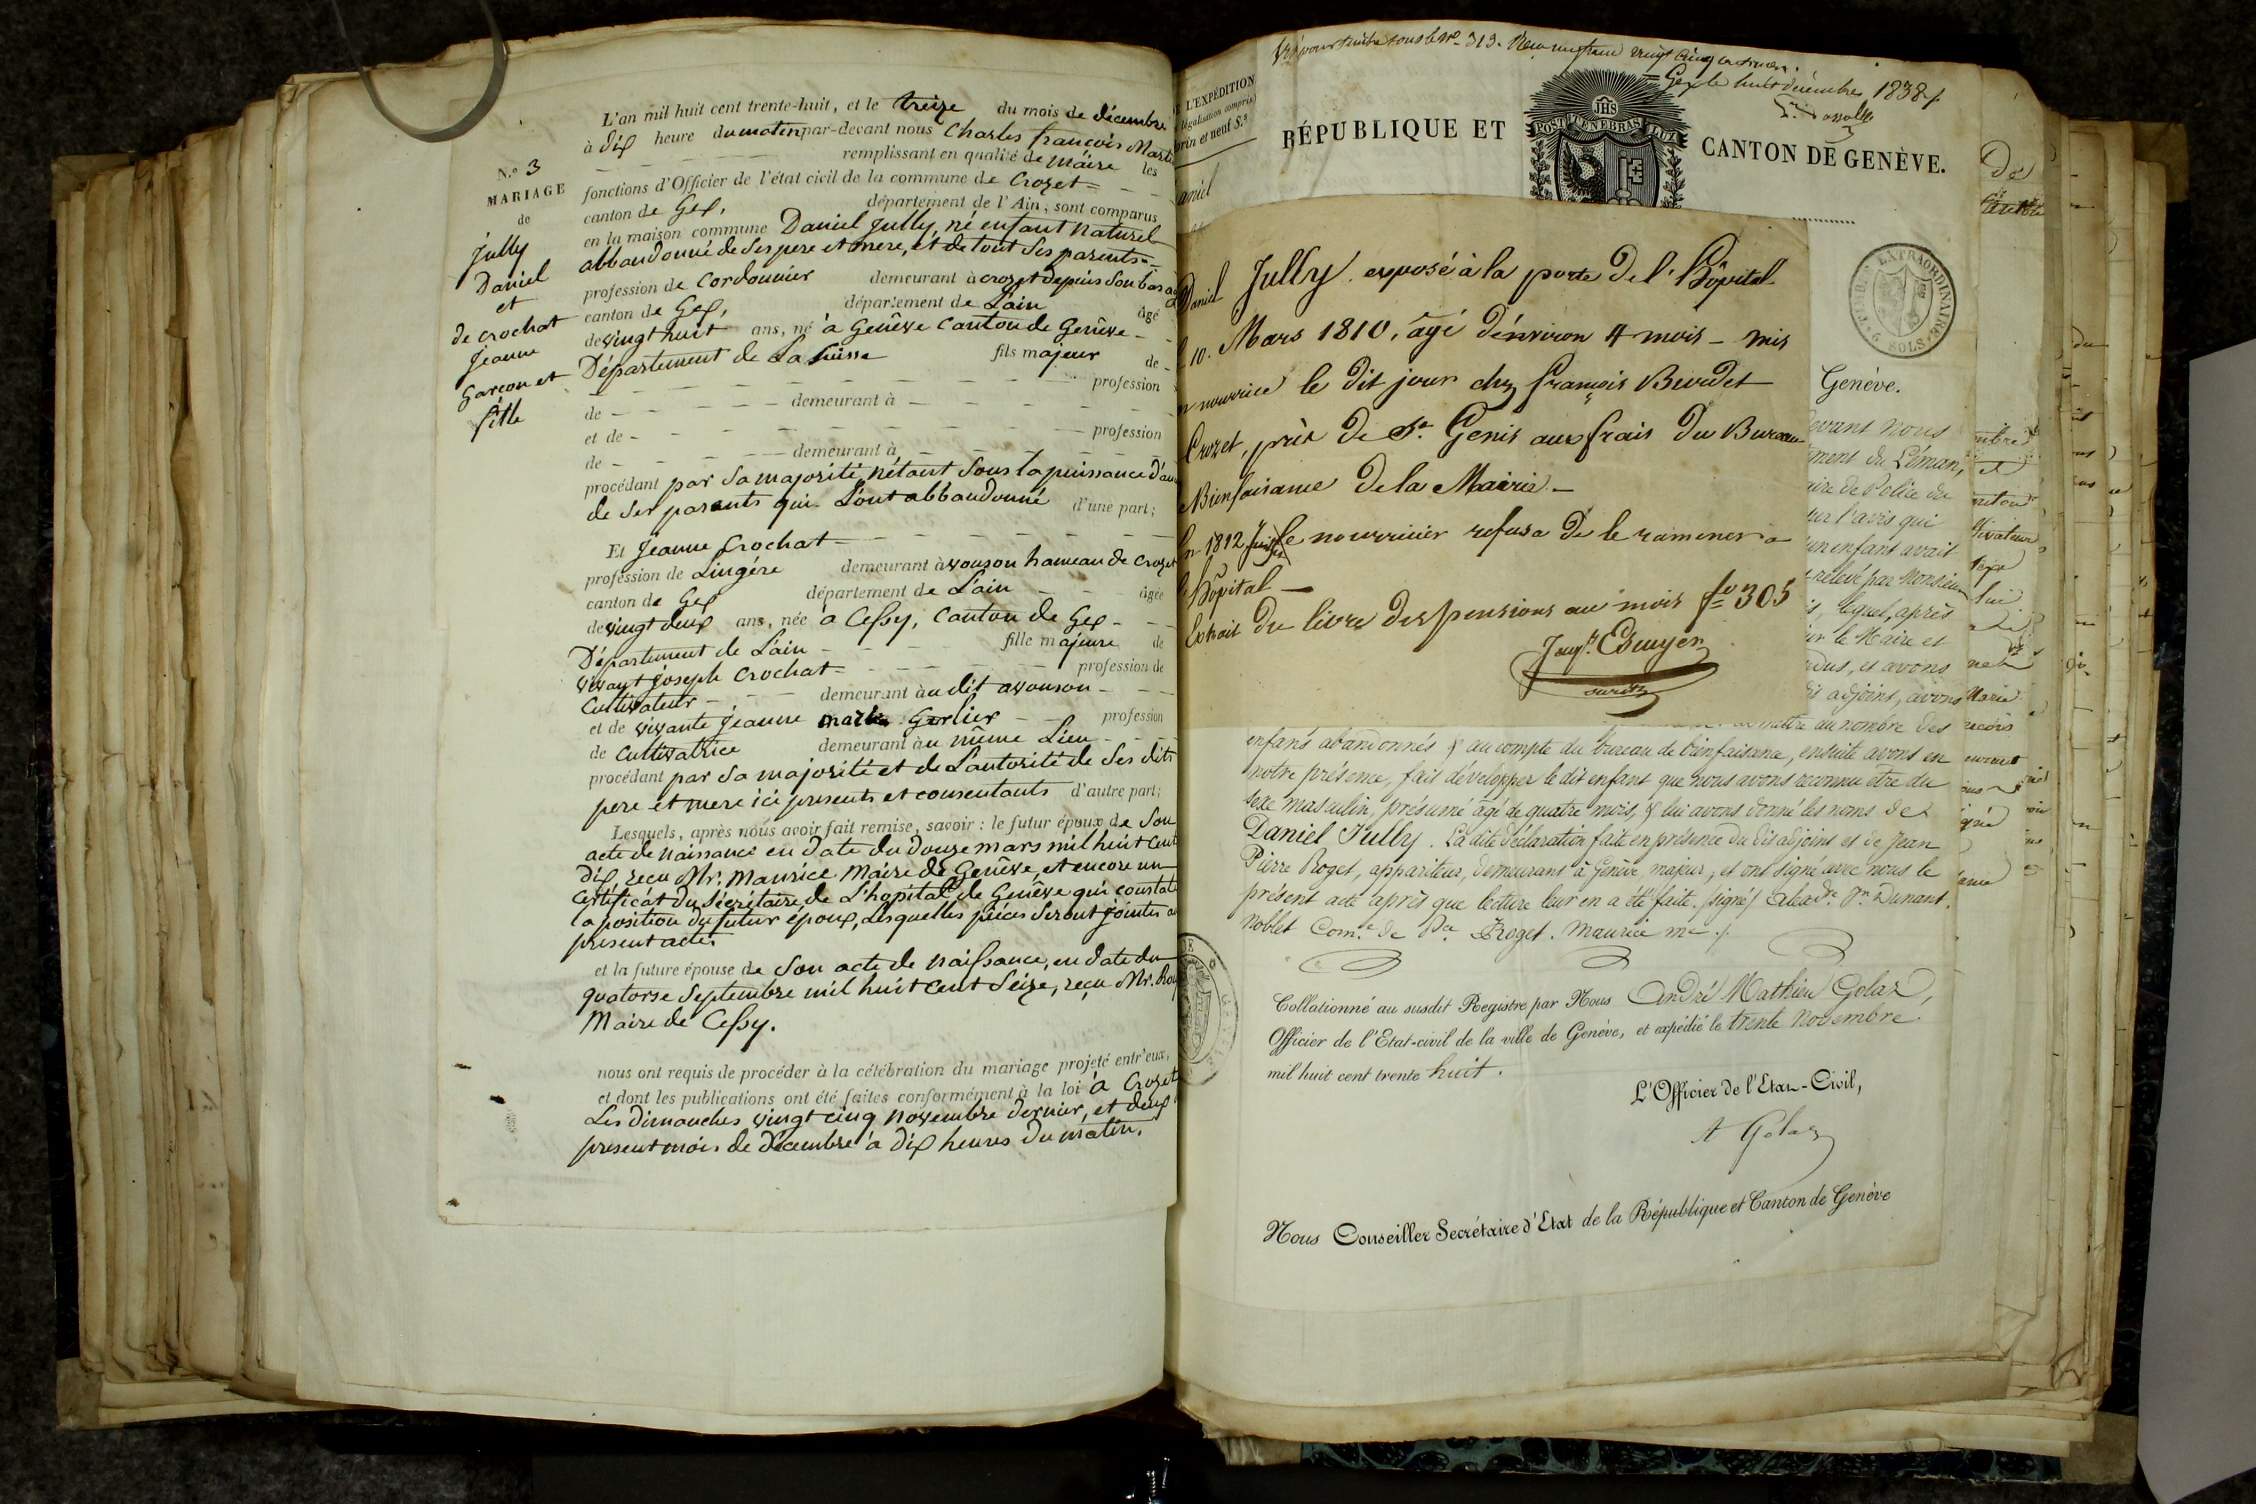 N.o 3
MARIAGE
de
Jully
Daniel
et
de crochat
Jeanne
Garçon et
fille
L'an mil huit cent trente-huit, et le treize du mois de décembre
à dix heure du matin par-devant nous Charles françois
remplissant en qualité de maire les
fonctions d'Officier de l'état civil de la commune de Crozet
canton de Gex, département de l'Ain, sont comparus
en la maison commune Daniel Jully, né enfant naturel
abbandonné de ses pere et mere, et de tout ses parents
profession de Cordonnier demeurant à crozet depuis son bas
canton de Gex, département de Lain âgé
de vingt huit ans, né à Genêve Canton de Genêve
Département de La Suisse fils majeur de
profession
de demeurant à
et de profession
de demeurant à
procédant par sa majorité, n'étant sous la puissance
de ses parents qui l'ont abbandonné d'une part;
Et Jeanne Crochat
profession de Lingére demeurant à avouson hameau de Crozet
canton de Gex département de L'ain âgée
de vingt deux ans, née à Cessy, Canton de Gex
Département de L'ain fille majeure de
vivant Joseph Crochat profession de
Cultivateur demeurant au dit avouson
et de vivante Jeanne marie Gerlier profession
de Cultivatrice demeurant au même Lieu
procédant par sa majorité et de L'autorité de ses dits
pere et mere ici presents et consentants d'autre part;
Lesquels, après nous avoir fait remise, savoir: le futur époux de Son
acte de naissance en date du douze mars mil huit Cent
dix reçu Mr. Maurice Maire de Genêve, et encore un
Certificat du Sécrétaire de L'hopital de Genêve qui constate
la position du futur époux, Lesquelles pièces seront jointes au
présent acte.
et la future épouse de Son acte de naissance, en date du
quatorse Septembre mil huit Cent Seize, reçu Mr.
Maire de Cessy.
nous ont requis de procéder à la célébration du mariage projeté entr'eux,
et dont les publications ont été faites conformément à la loi à Crozet
Les dimanches vingt cinq novembre dernier, et deux
present mois de décembre à dix heures du matin.
Visé pour timbre sous le No. 313. Reçu un franc vingt cinq centimes.
Gex le huit décembre 1838
L'EXPÉDITION
légalisation compris)
et neuf S.s
RÉPUBLIQUE ET CANTON DE GENÈVE.
JHS
POST TENEBRAS LUX
EXTRAORDINAIRE
6 SOLS
Daniel Jully exposé à la porte de l'Hôpital
10. Mars 1810, âgé d'environ 4 mois – mis
nourrice le dit jour chez françois
Crozet, près de St. Genis aux frais du Bureau
Bienfaisance de la Mairie.
1812 le nourricier refusa de le ramener à
l'Hôpital
Extrait du livre des pensions au mois fo 305
Genève.
devant nous
du Léman,
de Police du
l'avis qui
un enfant avait
relevé par Monsieur
lequel, après
le Maire et
et avons
adjoint, avons
mettre au nombre des
enfans abandonnés & au compte du bureau de bienfaisance, ensuite avons en
notre présence, fait développer le dit enfant que nous avons reconnu être du
sexe masculin, présumé âgé de quatre mois, & lui avons donné les noms de
Daniel Jully. La dite déclaration faite en présence du dit adjoint et de Jean
Pierre Roget, appariteur, demeurant à Genève, majeur, et ont signé avec nous le
présent acte après que lecture leur en a été faite. (signé) Dunant.
Noblet Com.re de P.ce Roget. Maurice m.re
Collationné au susdit Registre par Nous André Mathieu Golaz,
Officier de l'Etat-civil de la ville de Genève, et expédié le trente Novembre
mil huit cent trente huit.
L'Officier de l'Etat-Civil,
A Golaz
Nous Conseiller Secrétaire d'Etat de la République et Canton de Genève